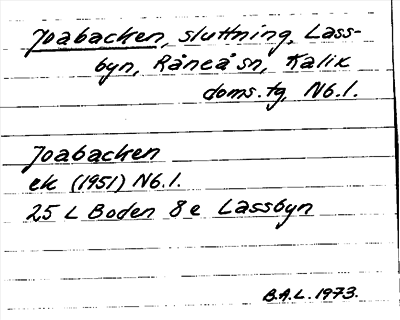 Joabacken, sluttning, Lass-
byn, Råneå sn, Kalix
doms. tg, Nb. l.
Joabacken
ek (1951) Nb. l.
25 L Boden 8 e Lassbyn
B.A.L. 1973.